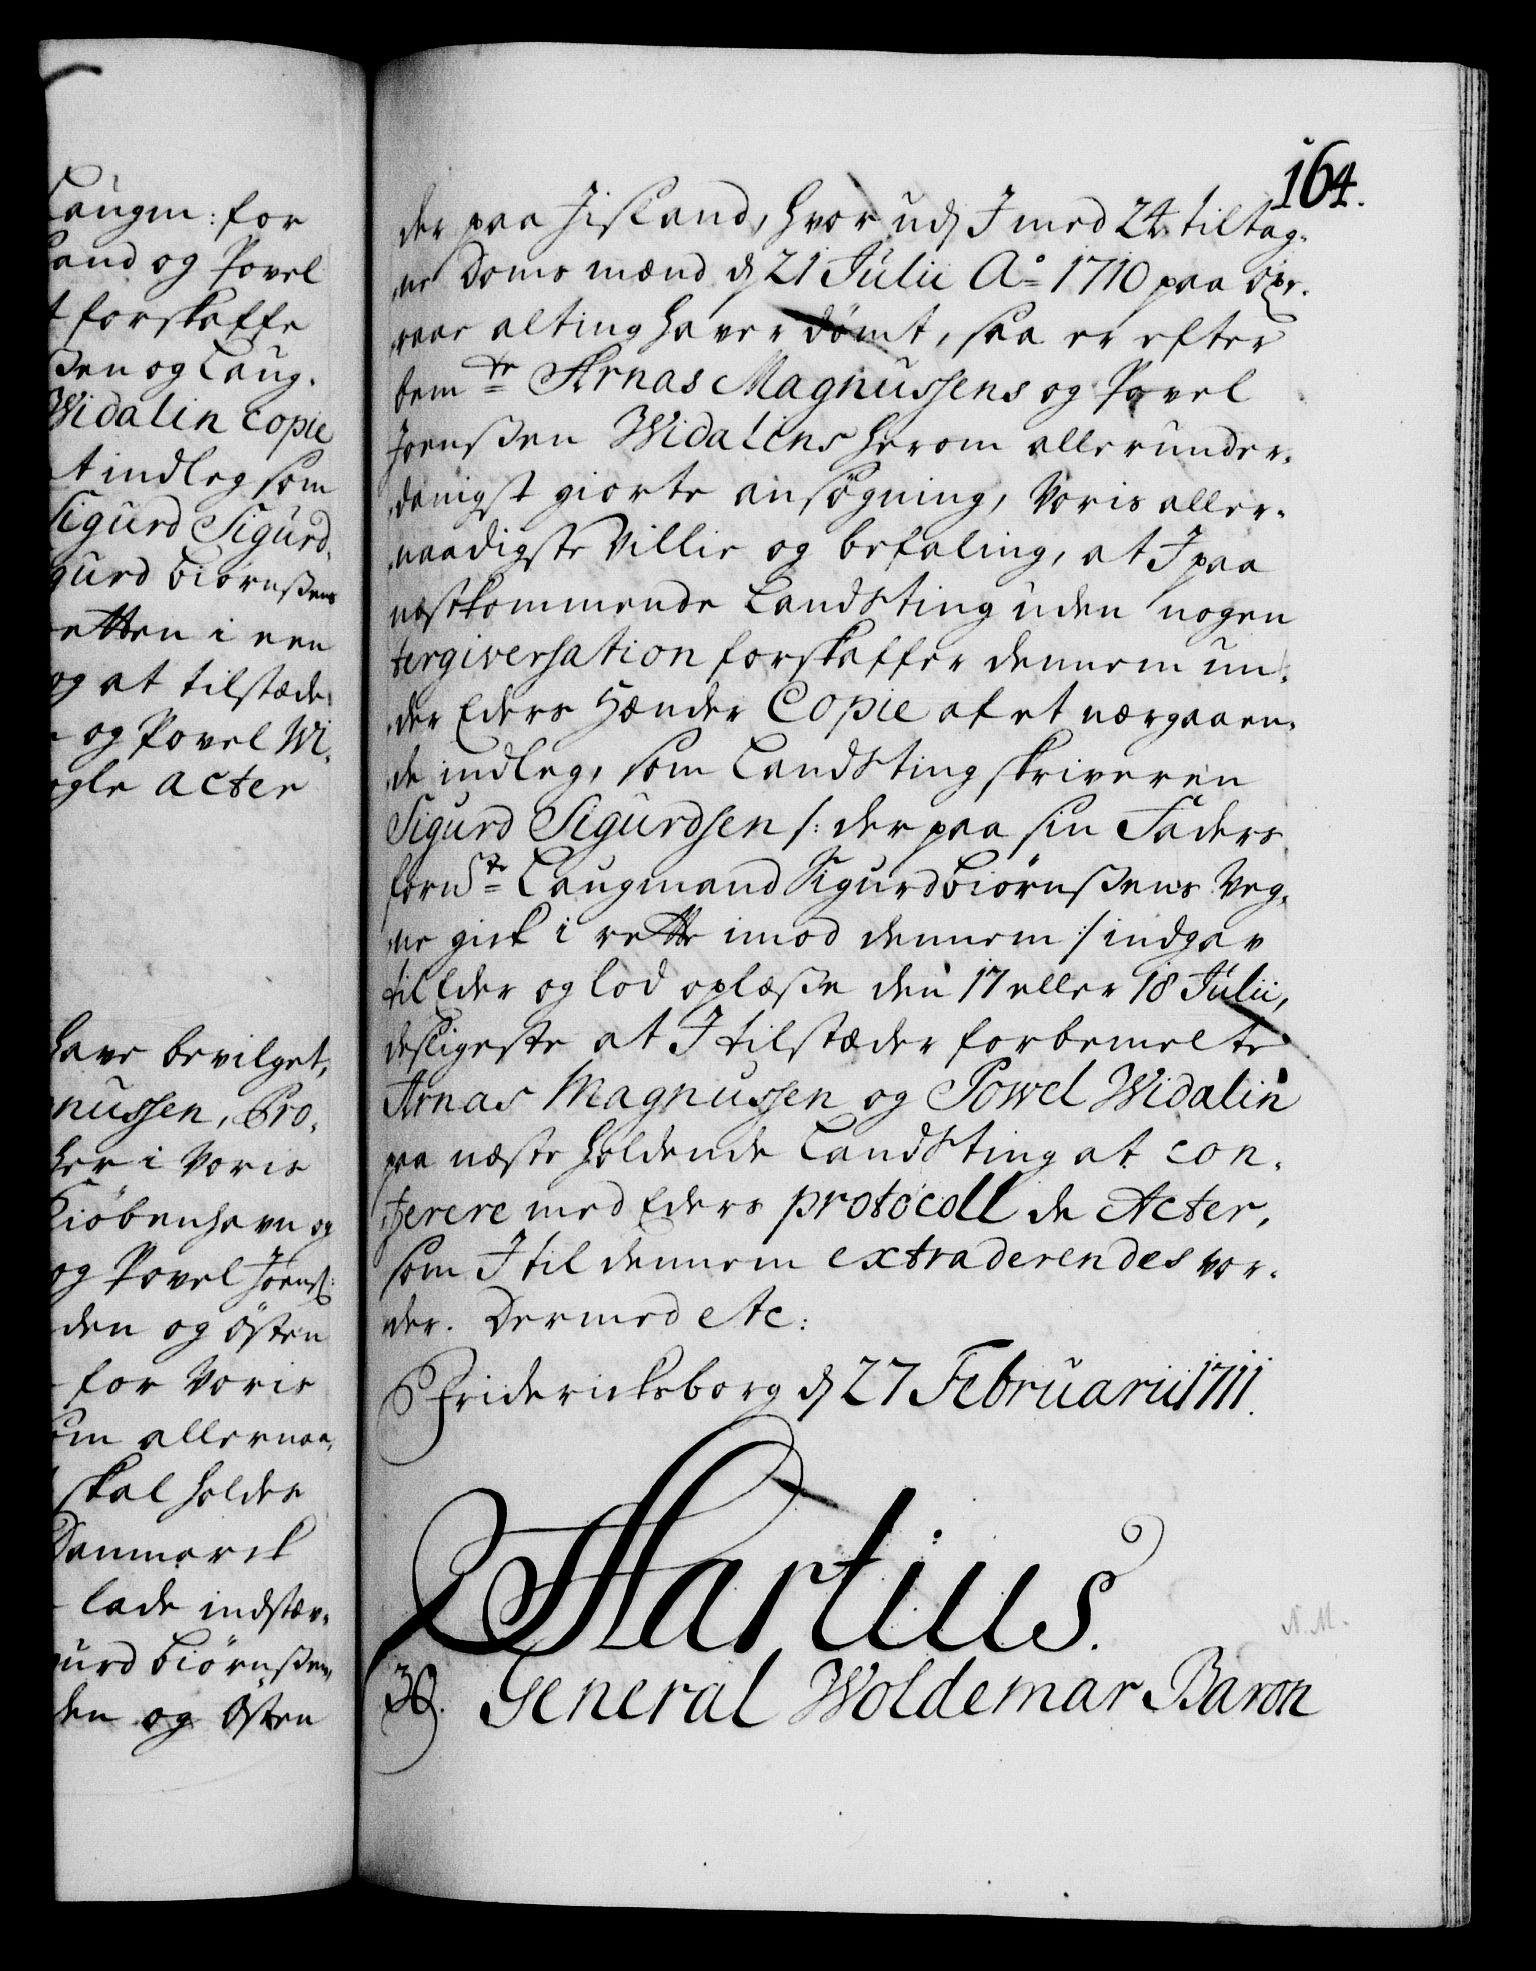 Laugm: for
land og Povel
t forskaffe
ßen og Laug.
Widalin Copie
t indleg som
Sigurd Sigurd,
gurd Biørnßens
retten i een
og at tilstæde
og Povel Wi,
ogle Acter
have bevilget,
nussen, Pro,
her i Voris
Kiøbenhavn og
og Povel Joenß:
den og Østen
for Voris
som allernaa,
skal holdes
Danmarck
lade indstæv,
urd Biørnßen,
den og Østen
164.
der paa Jisland, hvor udj J med 24 tiltag,
,ne Doms mænd dj 21 Julii A° 1710 paa Øxe,
raae alting haver dømt, saa er efter
bem.te Arnas Magnussens og Povel
Joensßen Widalins herom allerunder,
danigst giorte ansøgning, Voris aller,
naadigste Villie og befaling, at J paa
nestkommende Landsting uden nogen
tergiversation forskaffer dennem un,
,der Eders Hænder Copie af et nærgaaen,
de indleg, som Landstingskriveren
Sigurd Sigurdsen /: der paa sin Faders
fornd.te Laugmand Sigurd Biørnßens Veg,
,ne gick i rette imod dennem :/ indgav
til Eder og lod oplæße den 17 eller 18 Julii,
desligeste at J tilstæder forbemelte
Arnas Magnussen og Powel Widalin
paa næste holdende Landsting at con,
,ferere med Eders protocoll de Acter,
som J til dennem extraderendes vor,
der. Dermed etc:
Friderichsborg dj 27 Februarii 1711.
Martius.
N.M.
30. General Woldemar Baron